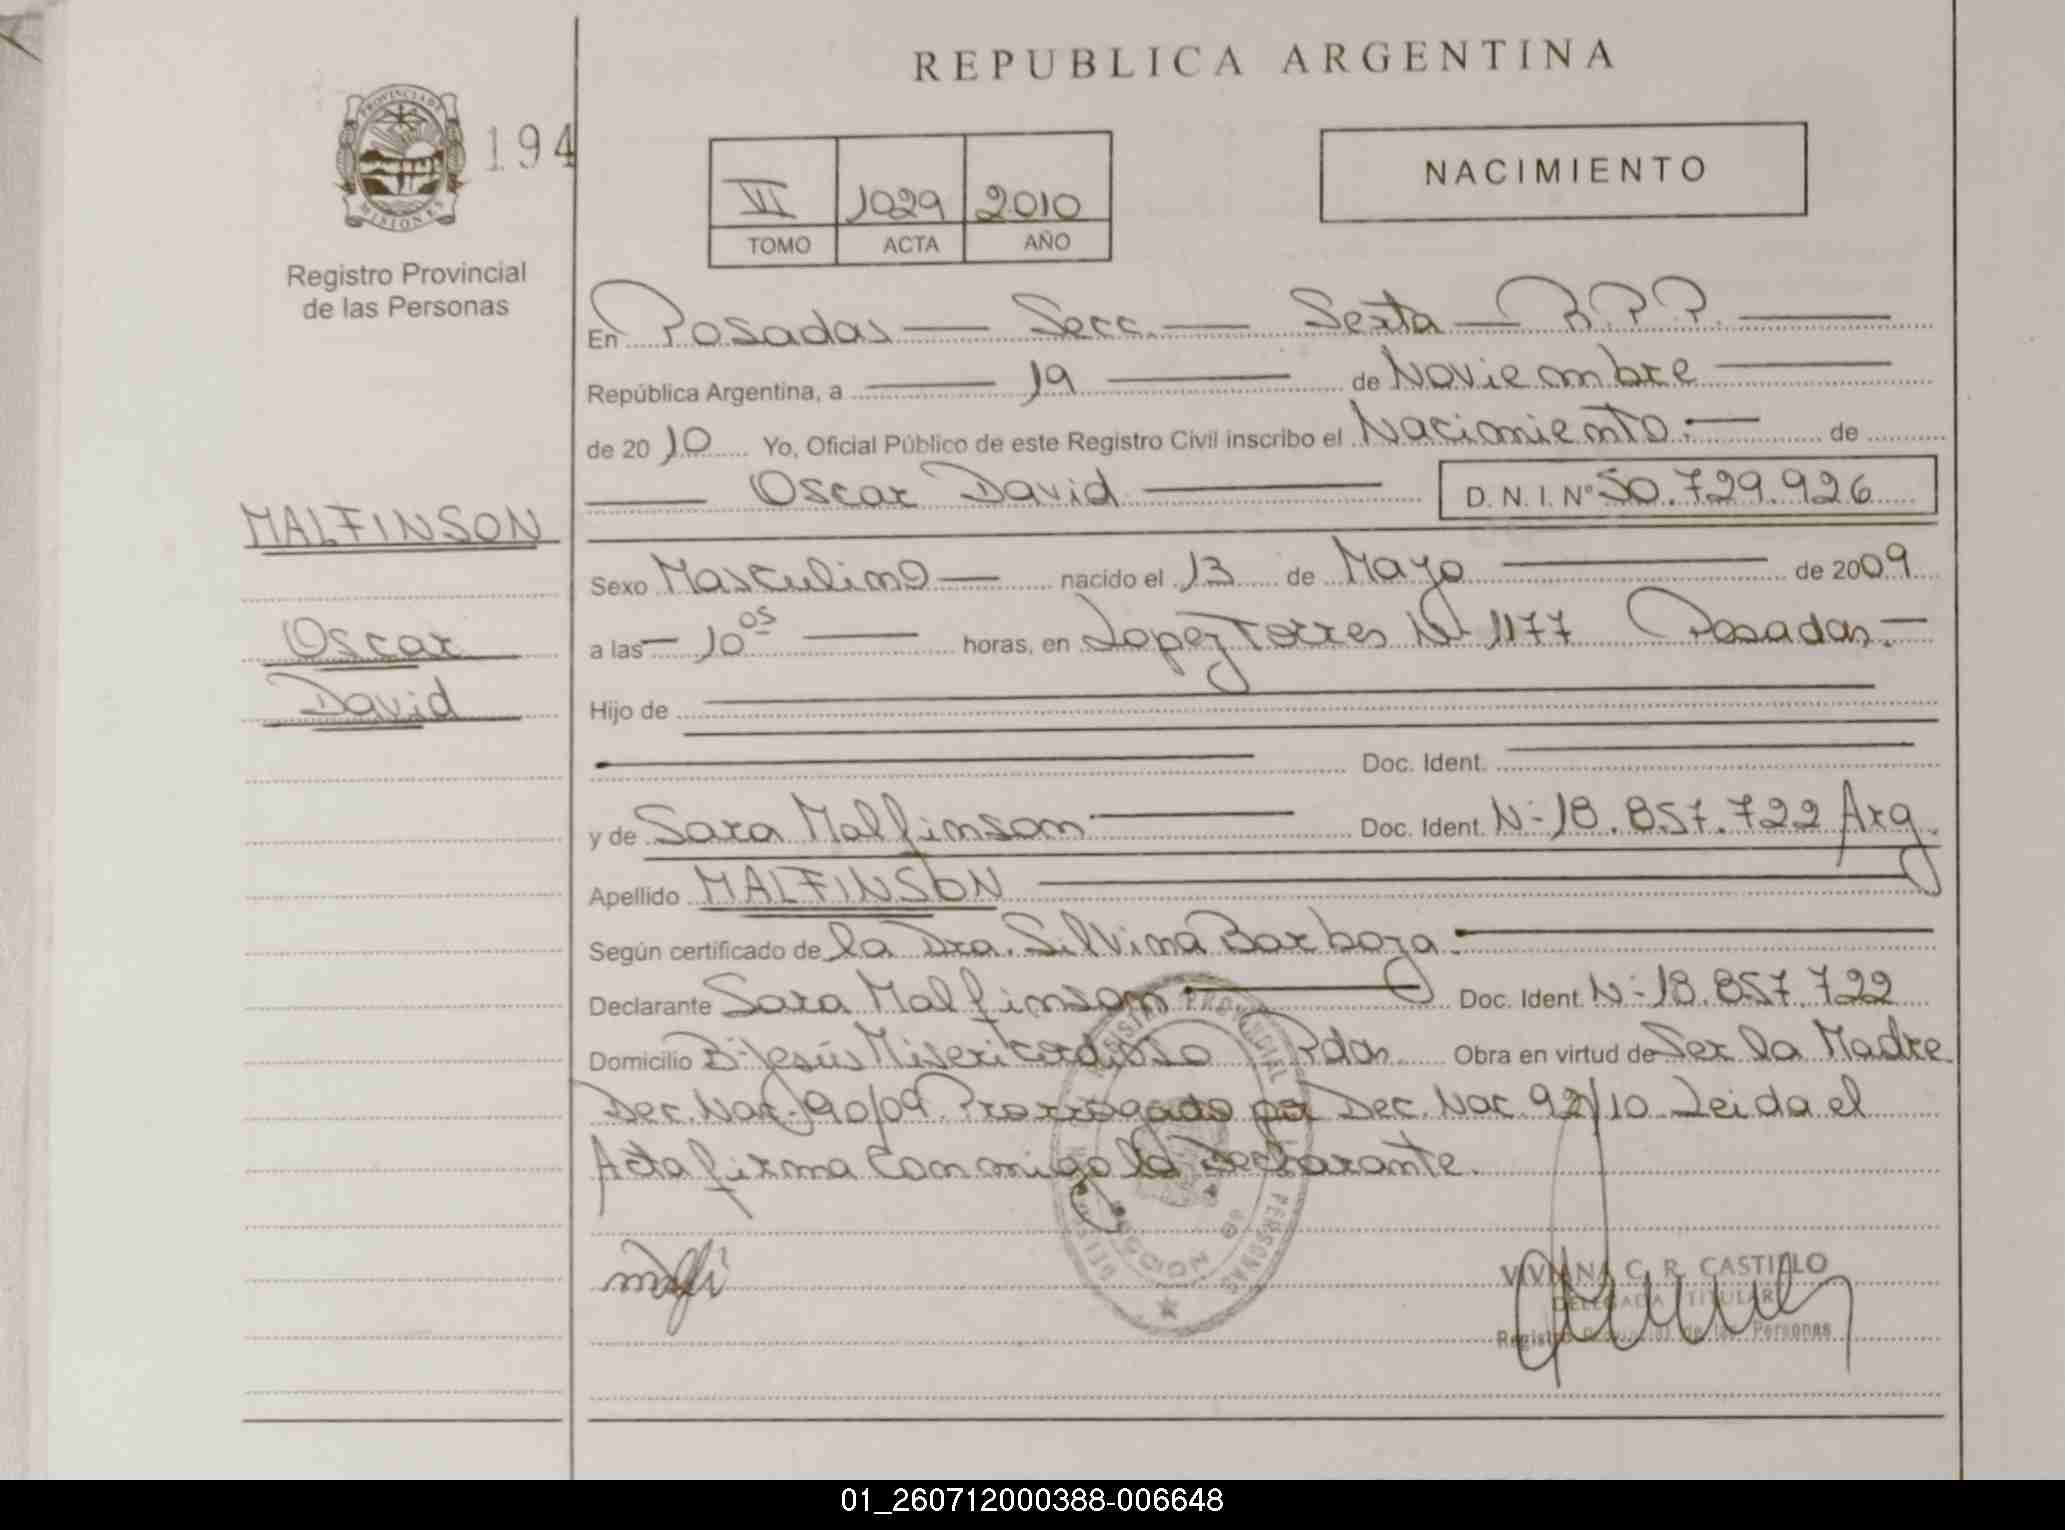 REPUBLICA ARGENTINA
PROVINCIA DE
MISIONES
194
Registro Provincial
de las Personas
VI 1029 2010
TOMO ACTA AÑO
NACIMIENTO
En Posadas — Secc. — Sexta — R.P.P. —
República Argentina, a — 19 — de Noviembre —
de 2010 Yo, Oficial Público de este Registro Civil inscribo el Nacimiento. — de
— Oscar David — D. N. I. Nº 50.729.926
MALFINSON
Oscar
David
Sexo Masculino — nacido el 13 de Mayo — de 2009
a las — 10 05 — horas, en Lopez Torres Nº 1177 Posadas. —
Hijo de —
— Doc. Ident. —
y de Sara Malfinson — Doc. Ident. Nº 18.857.722 Arg.
Apellido MALFINSON —
Según certificado de la Dra. Silvina Barboza. —
Declarante Sara Malfinson — Doc. Ident. Nº 18.857.722
Domicilio Bº Jesús Misericordioso Pdas. Obra en virtud de Ser la Madre
Dec. Nac. 90/09 Prorrogado por Dec. Nac. 92/10 Leida el
Acta firma Conmigo la Declarante.
REGISTRO PROVINCIAL DE LAS PERSONAS
VIVIANA C. R. CASTILLO
DELEGADA TITULAR
Registro Provincial de las Personas
01_260712000388-006648